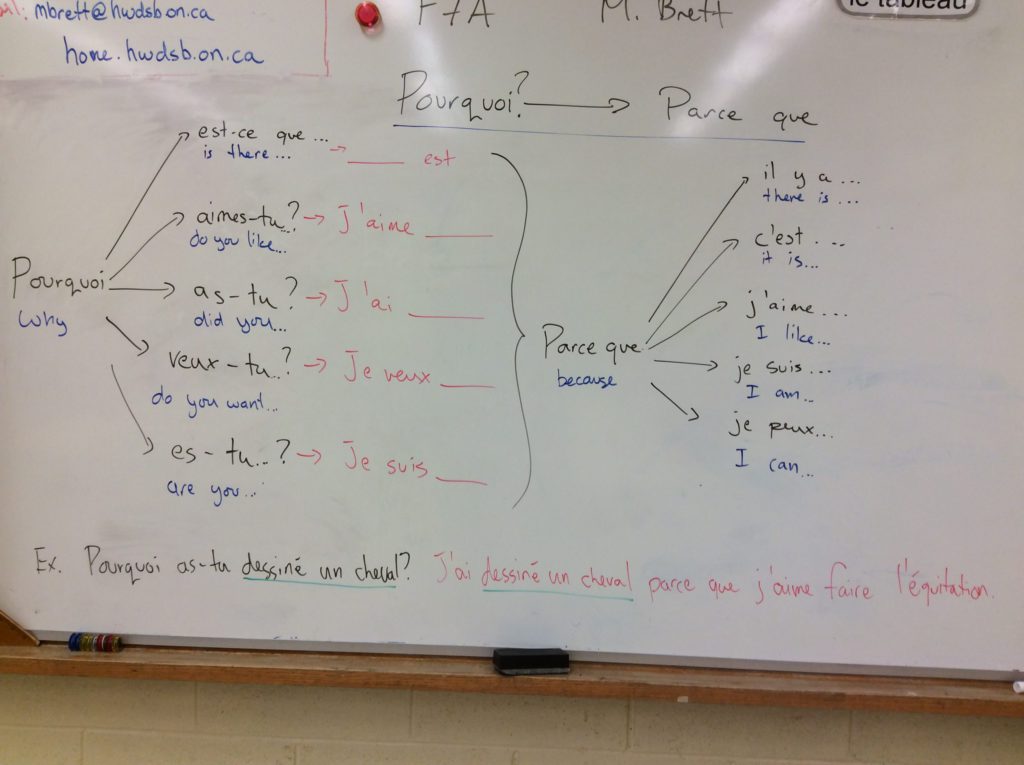 mbrett@hwdsb.on.ca
home.hwdsb.on.ca
M. Brett
le tableau
Pourquoi? → Parce que
Pourquoi
why
est-ce que ... → ____ est
is there...
aimes-tu..? → J'aime ____
do you like...
as-tu..? → J'ai ____
did you...
veux-tu..? → Je veux ____
do you want...
es-tu...? → Je suis ____
are you...
Parce que
because
il y a ...
there is ...
c'est ...
it is...
j'aime ...
I like...
je suis ...
I am...
je peux...
I can...
Ex. Pourquoi as-tu dessiné un cheval? J'ai dessiné un cheval parce que j'aime faire l'équitation.